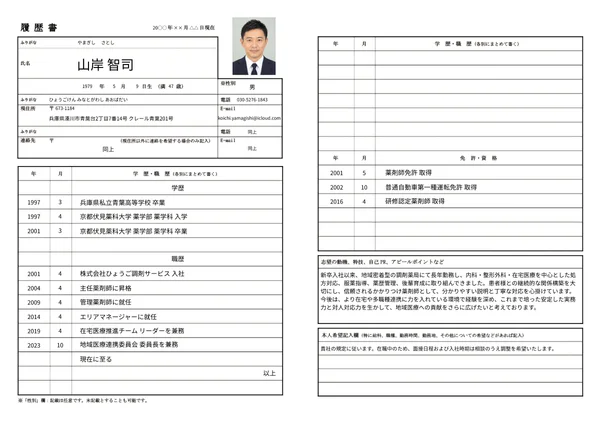 履 歴 書
20○○ 年 ×× 月 △△ 日現在
ふりがな
やまぎし さとし
氏名
山岸 智司
1979 年 5 月 9 日生 (満 47 歳)
※性別
男
ふりがな
ひょうごけん みなとがわし あおばだい
電話
030-5276-1843
現住所
〒673-1184
E-mail
兵庫県湊川市青葉台2丁目7番14号 クレール青葉201号
koichi.yamagishi@icloud.com
ふりがな
電話
同上
連絡先
〒
(現住所以外に連絡を希望する場合のみ記入)
E-mail
同上
同上
年
月
学 歴・職 歴 (各別にまとめて書く)
学歴
1997 3 兵庫県私立青葉高等学校 卒業
1997 4 京都伏見薬科大学 薬学部 薬学科 入学
2001 3 京都伏見薬科大学 薬学部 薬学科 卒業
職歴
2001 4 株式会社ひょうご調剤サービス 入社
2004 4 主任薬剤師に昇格
2009 4 管理薬剤師に就任
2014 4 エリアマネージャーに就任
2019 4 在宅医療推進チーム リーダーを兼務
2023 10 地域医療連携委員会 委員長を兼務
現在に至る
以上
※「性別」欄：記載は任意です。未記載とすることも可能です。
年
月
学 歴・職 歴 (各別にまとめて書く)
年
月
免 許・資 格
2001 5 薬剤師免許 取得
2002 10 普通自動車第一種運転免許 取得
2016 4 研修認定薬剤師 取得
志望の動機、特技、自己PR、アピールポイントなど
新卒入社以来、地域密着型の調剤薬局にて長年勤務し、内科・整形外科・在宅医療を中心とした処
方対応、服薬指導、薬歴管理、後輩育成に取り組んできました。患者様との継続的な関係構築を大
切にし、信頼されるかかりつけ薬剤師として、分かりやすい説明と丁寧な対応を心掛けています。
今後は、より在宅や多職種連携に力を入れている環境で経験を深め、これまで培った安定した実務
力と対人対応力を生かして、地域医療への貢献をさらに広げたいと考えております。
本人希望記入欄 (特に給料、職種、勤務時間、勤務地、その他についての希望などがあれば記入)
貴社の規定に従います。在職中のため、面接日程および入社時期は相談のうえ調整を希望いたします。